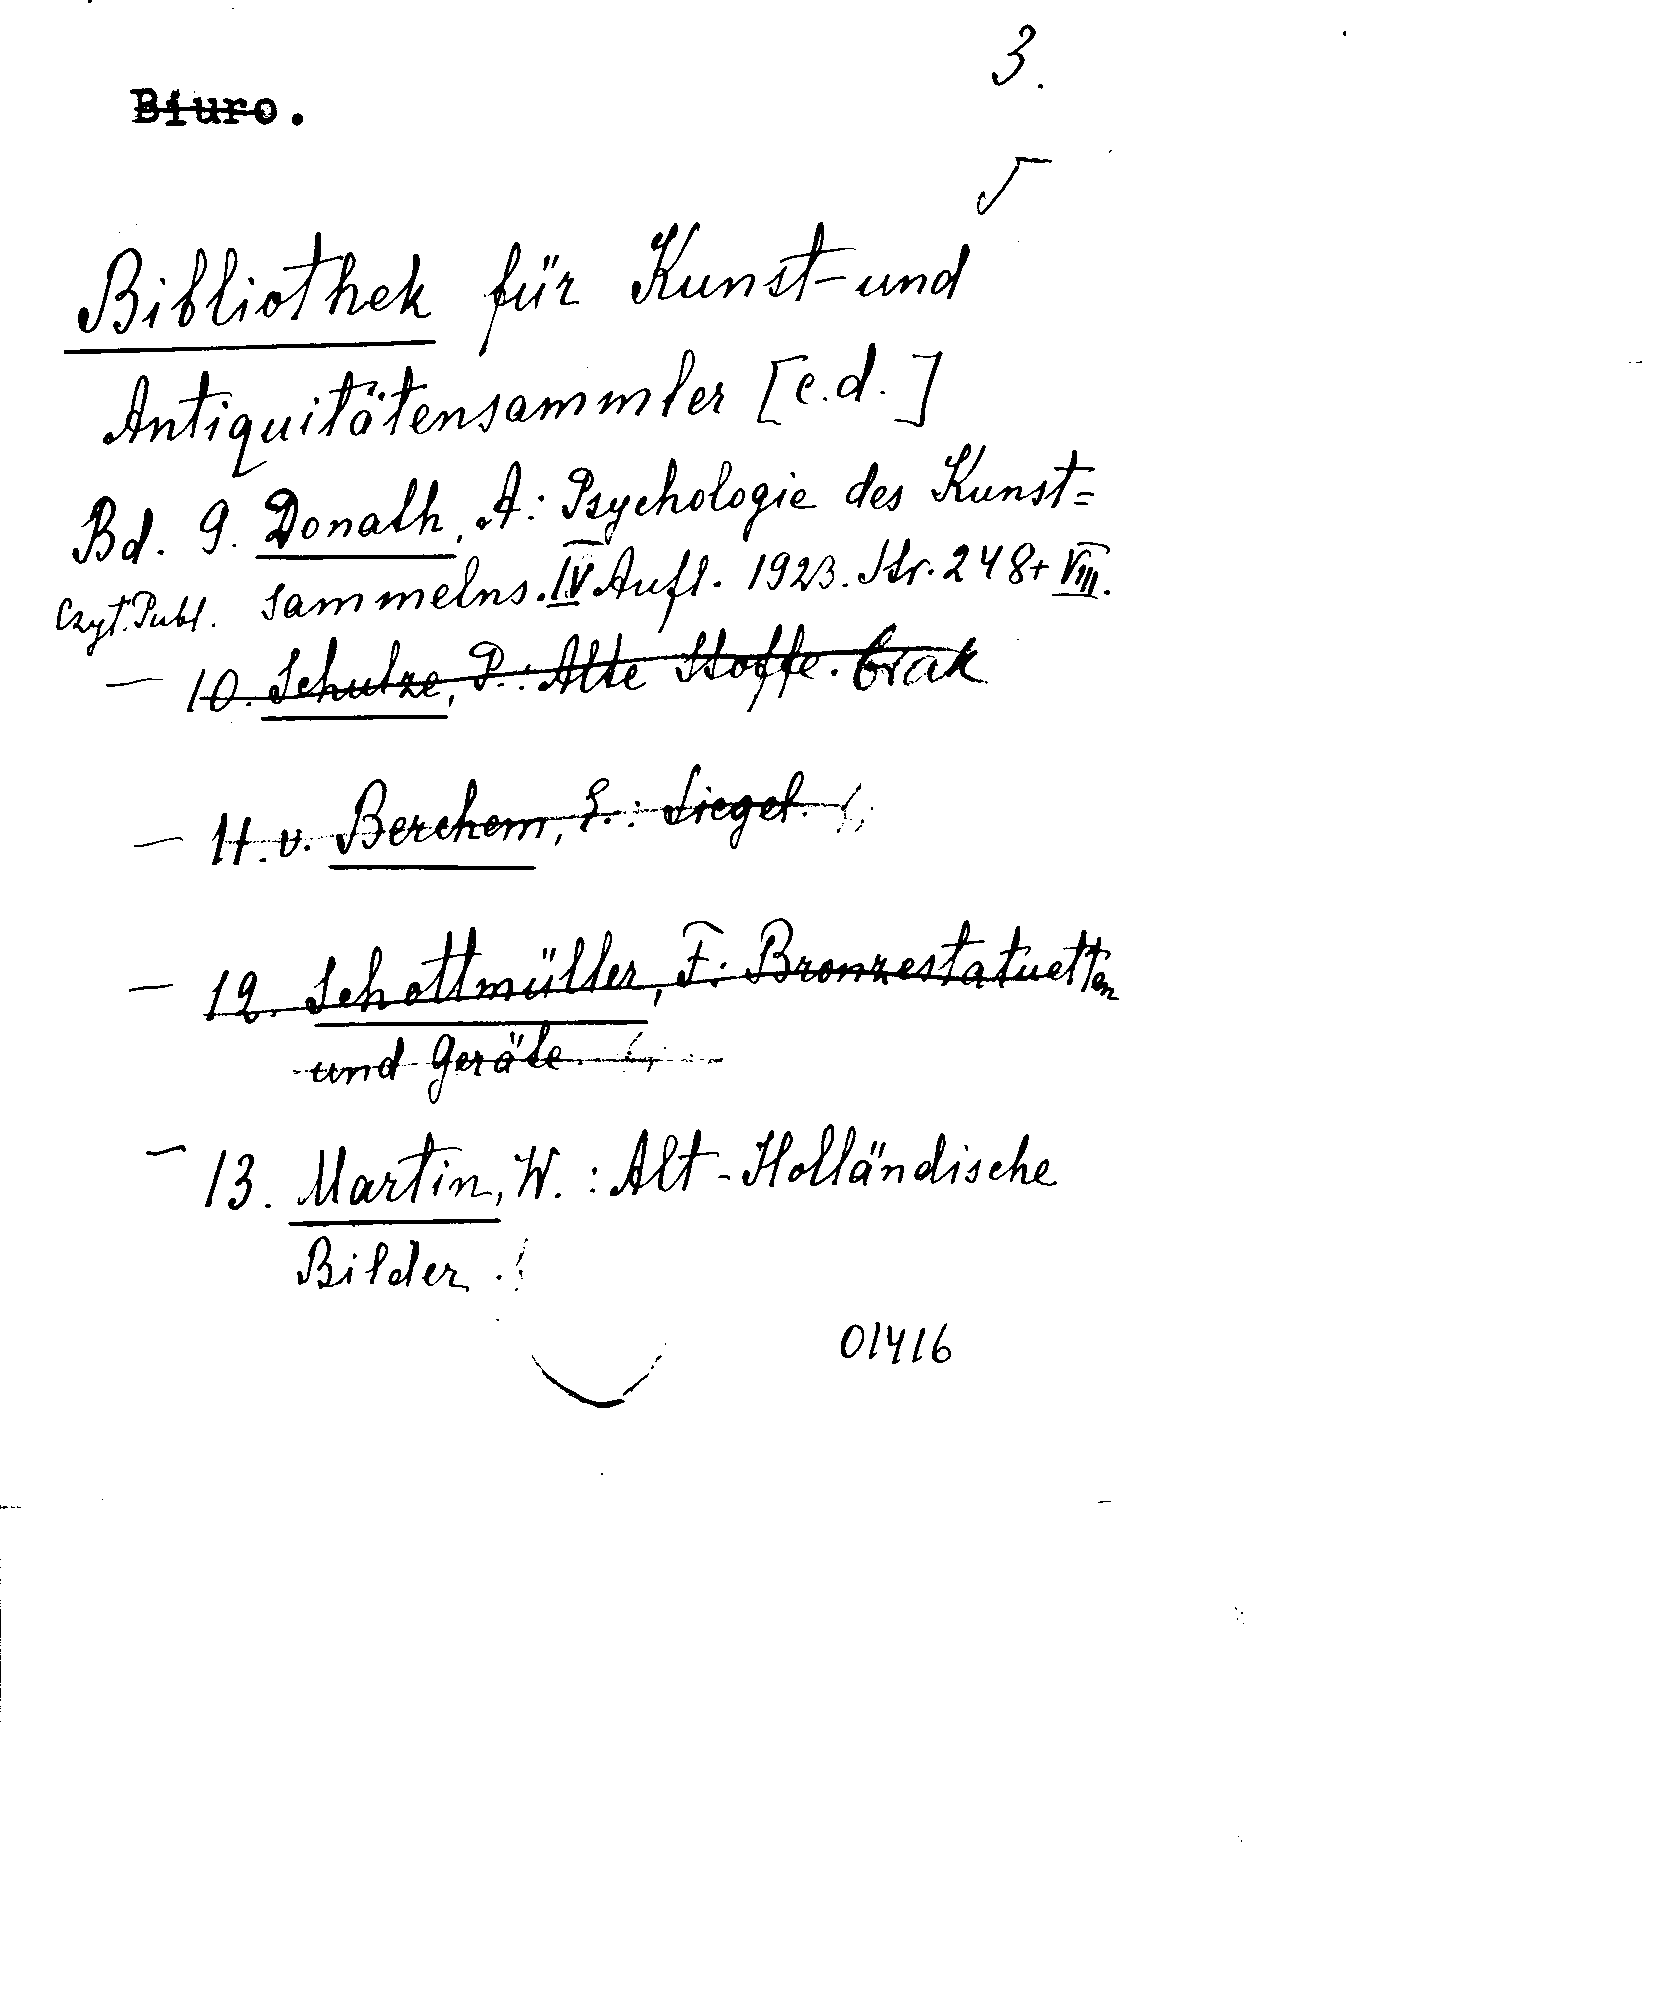 3.
Biuro.
Bibliothek für Kunst- und
Antiquitätensammler [c.d.]
Bd. 9. Donath, A: Psychologie des Kunst=
Czyt. Publ. sammelns. IV Aufl. 1923. Str. 248+VIII.
— 10. Schulze, P.: Alte Stoffe. brak
— 11. v. Berchem, E.: Siegel.
— 12. Schottmüller, F: Bronzestatuetten
und Geräte
— 13. Martin, W.: Alt-Holländische
Bilder.
01416